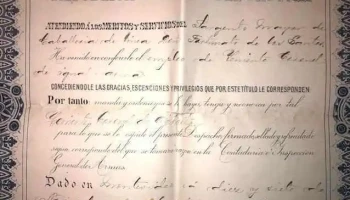 ATENDIENDO A LOS MERITOS Y SERVICIOS DEL Sargento Mayor de
Caballeria de Linea Don Fortunato de los Santos
Ha venido en conferirle el empleo de Teniente Coronel
de igual arma
CONCEDIENDOLE LAS GRACIAS, ESCENCIONES Y PRIVILEGIOS QUE POR ESTE TÍTULO LE CORRESPONDEN
Por tanto manda y ordena se le haya, tenga y reconozca por tal
Teniente Coronel de
para lo que se le expide el presente Despacho, firmado, sellado y refrendado
segun corresponde del que se tomará razon en la Contaduria é Inspeccion
General de Armas
Dado en Montevideo á